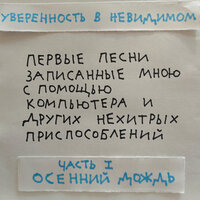 УВЕРЕННОСТЬ В НЕВИДИМОМ
ПЕРВЫЕ ПЕСНИ
ЗАПИСАННЫЕ МНОЮ
С ПОМОЩЬЮ
КОМПЬЮТЕРА И
ДРУГИХ НЕХИТРЫХ
ПРИСПОСОБЛЕНИЙ
ЧАСТЬ I
ОСЕННИЙ ДОЖДЬ